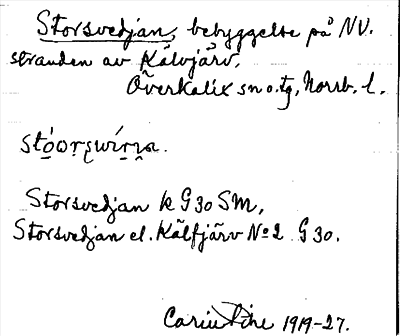 Storsvedjan, bebyggelse på NV.
stranden av Kälvjärv.
Överkalix sn o. tg, Norrb. l.
Storsvedjan k G30 SM,
Storsvedjan el. Kälfjärv № 2 G30.
1919-27.